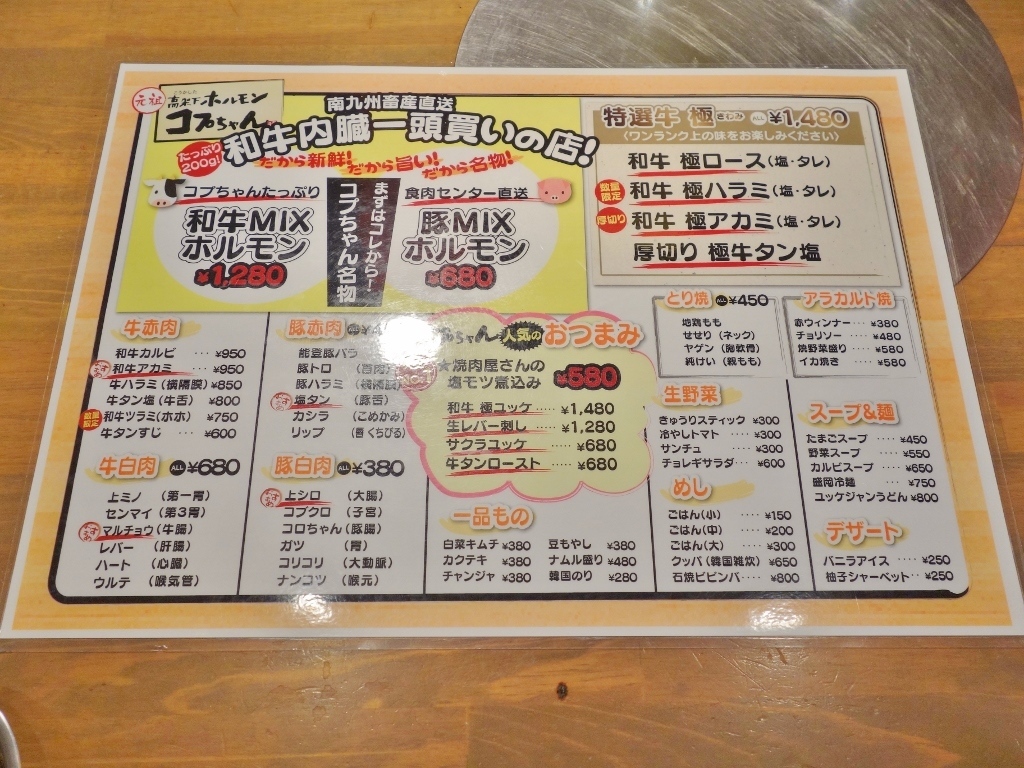 元祖
高架下ホルモン
コプちゃん
南九州畜産直送
和牛内臓一頭買いの店!
たっぷり
200g!
だから新鮮! だから旨い! だから名物!
コプちゃんたっぷり
和牛MIX
ホルモン
¥1,280
まずはコレから!
コプちゃん名物
食肉センター直送
豚MIX
ホルモン
¥680
特選牛 極 きわみ ALL ¥1,480
(ワンランク上の味をお楽しみください)
和牛 極ロース(塩・タレ)
数量限定 和牛 極ハラミ(塩・タレ)
厚切り 和牛 極アカミ(塩・タレ)
厚切り 極牛タン塩
牛赤肉
和牛カルビ ‥‥ ¥950
和牛アカミ ‥‥ ¥950
牛ハラミ(横隔膜) ¥850
牛タン塩(牛舌) ¥800
数量限定 和牛ツラミ(ホホ) ¥750
牛タンすじ ‥‥ ¥600
牛白肉 ALL ¥680
上ミノ (第一胃)
センマイ (第3胃)
おすすめ マルチョウ(牛腸)
レバー (肝臓)
ハート (心臓)
ウルテ (喉気管)
豚赤肉 ALL
能登豚バラ
豚トロ
豚ハラミ (横隔膜)
塩タン (豚舌)
カシラ (こめかみ)
リップ (唇 くちびる)
豚白肉 ALL ¥380
おすすめ 上シロ (大腸)
コブクロ (子宮)
コロちゃん(豚腸)
ガツ (胃)
コリコリ (大動脈)
ナンコツ (喉元)
ちゃん 人気の おつまみ
★焼肉屋さんの
塩モツ煮込み ¥580
和牛 極ユッケ ‥‥‥ ¥1,480
生レバー刺し ‥‥‥ ¥1,280
サクラユッケ ‥‥‥ ¥680
牛タンロースト ‥‥‥ ¥680
一品もの
白菜キムチ ¥380
カクテキ ¥380
チャンジャ ¥380
豆もやし ¥380
ナムル盛り ¥480
韓国のり ¥280
とり焼 ALL ¥450
地鶏もも
せせり (ネック)
ヤゲン (胸軟骨)
純けい (親もも)
アラカルト焼
赤ウィンナー ‥‥ ¥380
チョリソー ‥‥ ¥480
焼野菜盛り ‥‥ ¥580
イカ焼き ‥‥ ¥580
生野菜
きゅうりスティック ¥300
冷やしトマト ‥‥ ¥300
サンチュ ‥‥ ¥300
チョレギサラダ ‥‥ ¥600
めし
ごはん(小) ‥‥ ¥150
ごはん(中) ‥‥ ¥200
ごはん(大) ‥‥ ¥300
クッパ(韓国雑炊) ¥650
石焼ビビンバ ‥‥ ¥800
スープ&麺
たまごスープ ‥‥ ¥450
野菜スープ ‥‥ ¥550
カルビスープ ‥‥ ¥650
盛岡冷麺 ‥‥ ¥750
ユッケジャンうどん ¥800
デザート
バニラアイス ‥‥ ¥250
柚子シャーベット ‥‥ ¥250